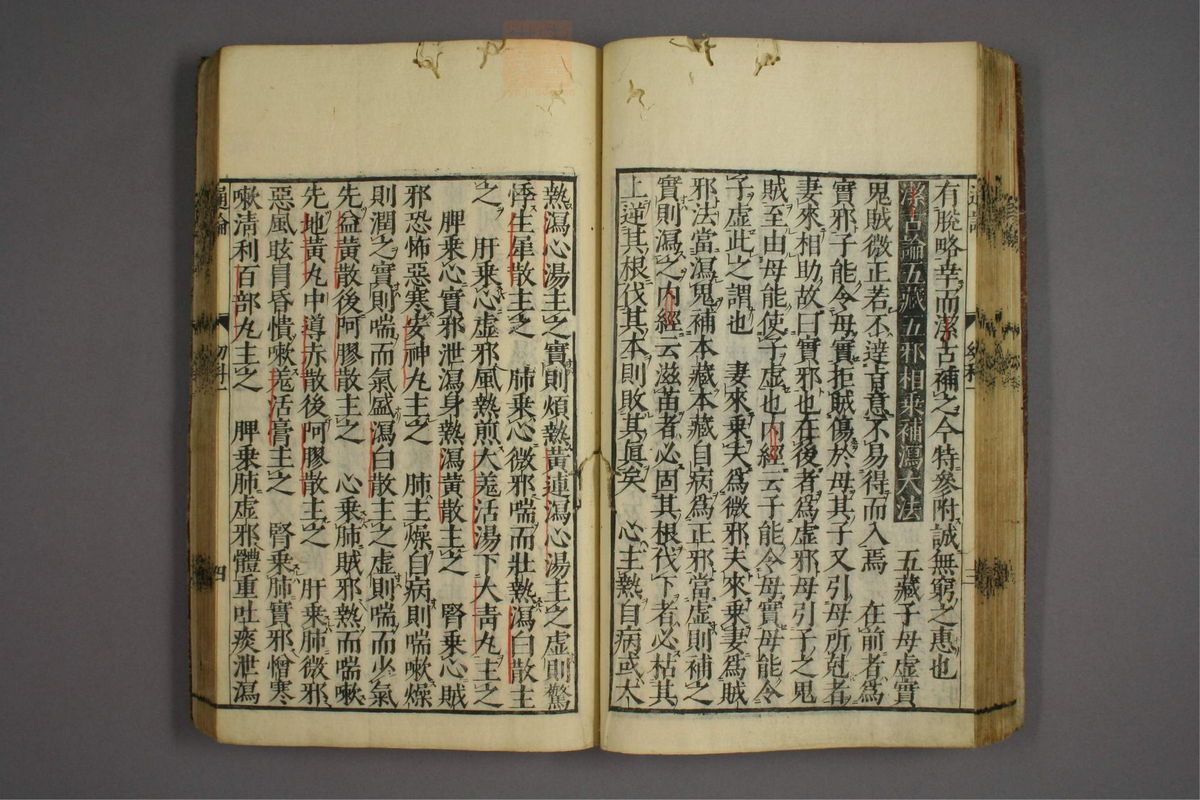 有脫略幸而潔古補之今特參附誠無窮之惠也
潔古論五藏五邪相乘補瀉大法　五藏子母虛實
鬼賊微正若不達旨意不易得而入焉　在前者爲
實邪子能令母實拒賊傷於母其子又引母所尅者
妻來相助故曰實邪也在後者爲虛邪母引子之鬼
賊至由母能使子虛也内經云子能令母實母能令
子虛此之謂也　妻來乘夫爲微邪夫來乘妻爲賊
邪法當瀉鬼補本藏本藏自病爲正邪當虛則補之
實則瀉之内經云滋苗者必固其根伐下者必枯其
上逆其根伐其本則敗其眞矣　心主熱自病或大
熱瀉心湯主之實則煩熱黃連瀉心湯主之虛則驚
悸生犀散主之　肺乘心微邪喘而壯熱瀉白散主
之　肝乘心虛邪風熱煎大羗活湯下大青丸主之
脾乘心實邪泄瀉身熱瀉黃散主之　腎乘心賊
邪恐怖惡寒安神丸主之　肺主燥自病則喘嗽燥
則潤之實則喘而氣盛瀉白散主之虛則喘而少氣
先益黃散後阿膠散主之　心乘肺賊邪熱而喘嗽
先地黃丸中導赤散後阿膠散主之　肝乘肺微邪
惡風眩冒昏憒嗽羗活膏主之　腎乘肺實邪憎寒
嗽淸利百部丸主之　脾乘肺虛邪體重吐痰泄瀉
幼科一
三
四